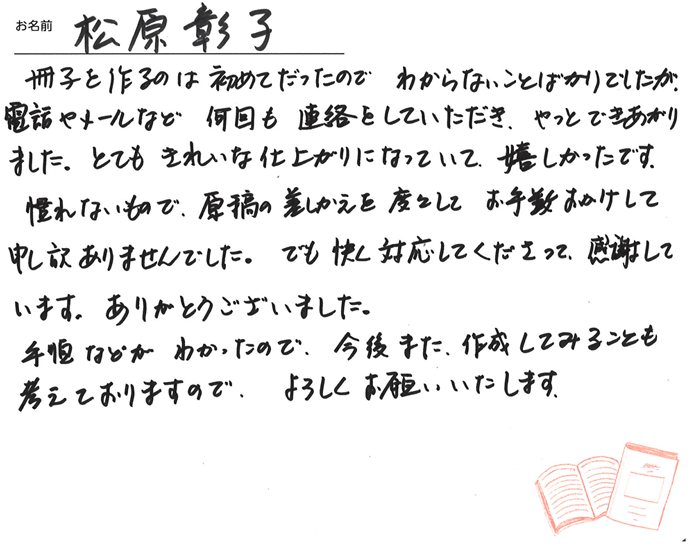 お名前 松原彰子
冊子を作るのは初めてだったので わからないことばかりでしたが、
電話やメールなど 何回も 連絡をしていただき、やっとできあがり
ました。とても きれいな仕上がりになっていて、嬉しかったです。
慣れないもので、原稿の差しかえを 度々して お手数おかけして
申し訳ありませんでした。でも 快く対応してくださって、感謝して
います。ありがとうございました。
手順などが わかったので、今後また、作成してみることも
考えておりますので、よろしくお願いいたします。